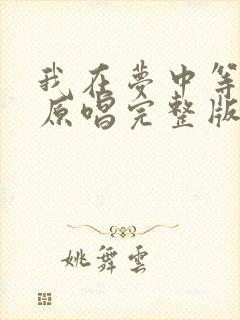 我在夢中等
原唱完整版
姚舞雲